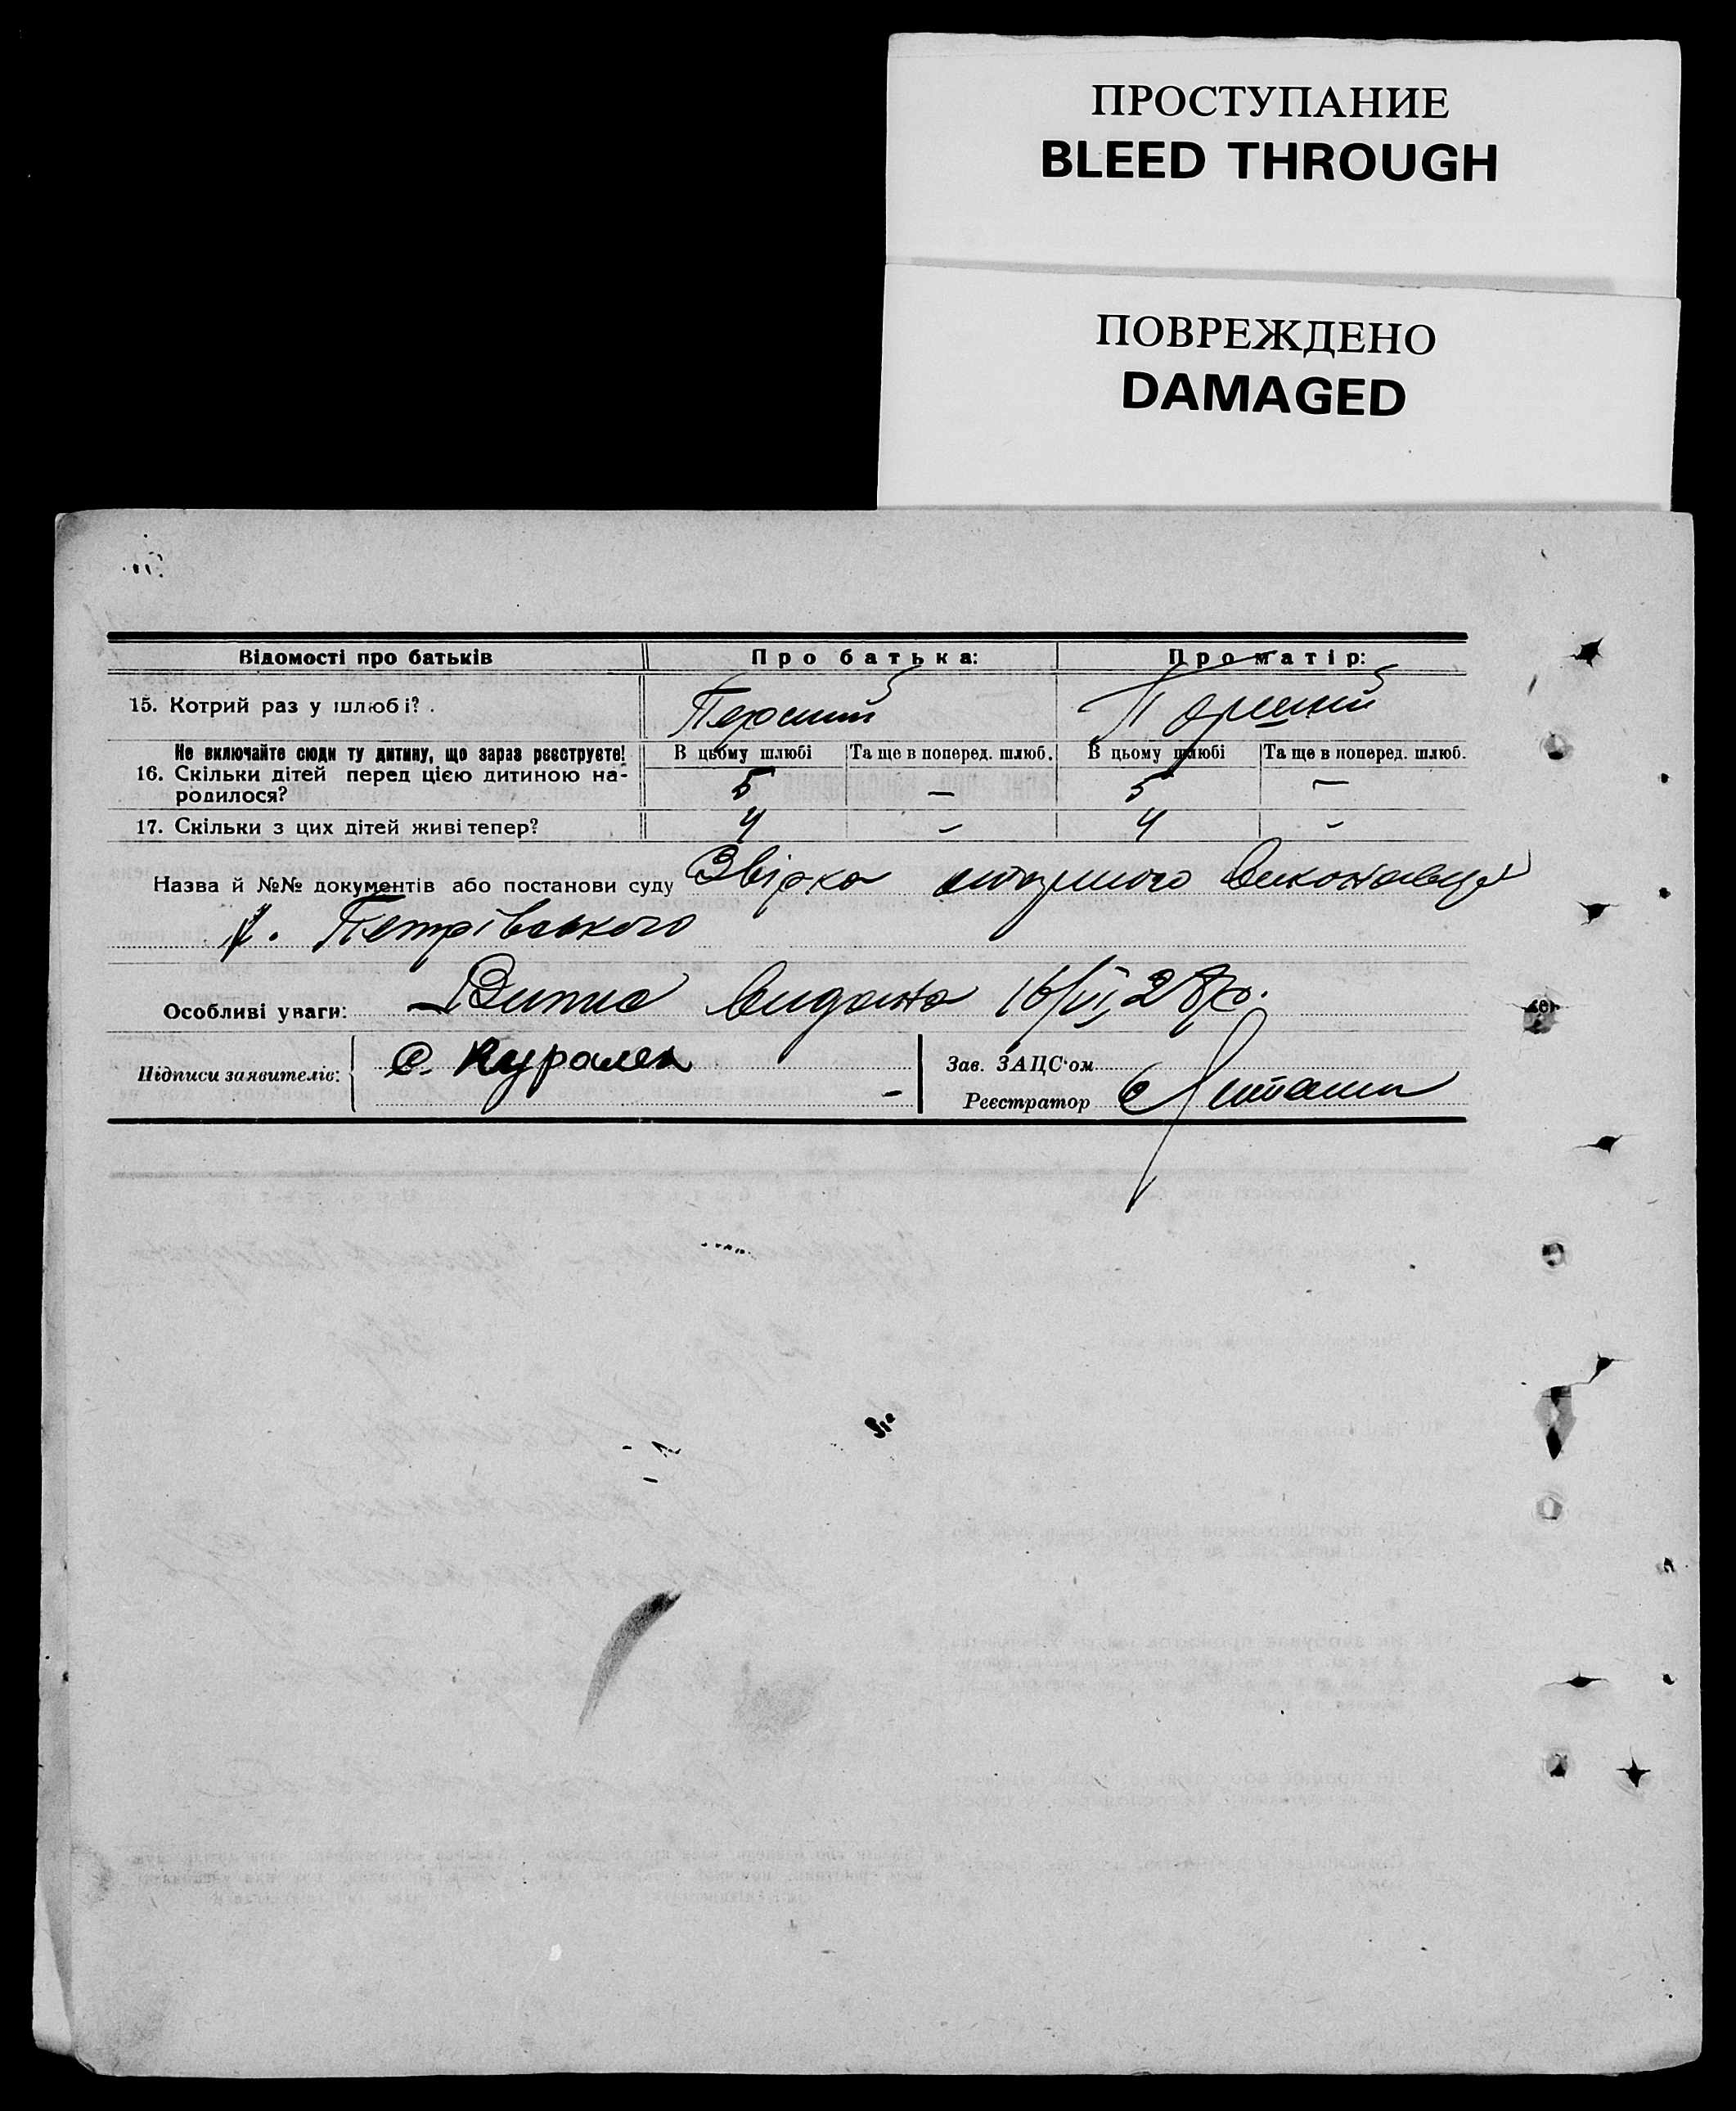 ПРОСТУПАНИЕ
BLEED THROUGH
ПОВРЕЖДЕНО
DAMAGED
Відомості про батьків Про батька: Про матір:
15. Котрий раз у шлюбі? . Перший Перший
Не включайте сюди ту дитину, що зараз реєструєте! В цьому шлюбі Та ще в поперед. шлюб. В цьому шлюбі Та ще в поперед. шлюб.
16. Скільки дітей перед цією дитиною на-
родилося? 5 — 5 —
17. Скільки з цих дітей живі тепер? 4 – 4 –
Назва й №№ документів або постанови суду Звірка виконавця
Петрівського
Особливі уваги: Випис видано 16/VI, 28 р.
Підписи заявителів: С. Куролен Зав. ЗАЦС'ом
– Реєстратор